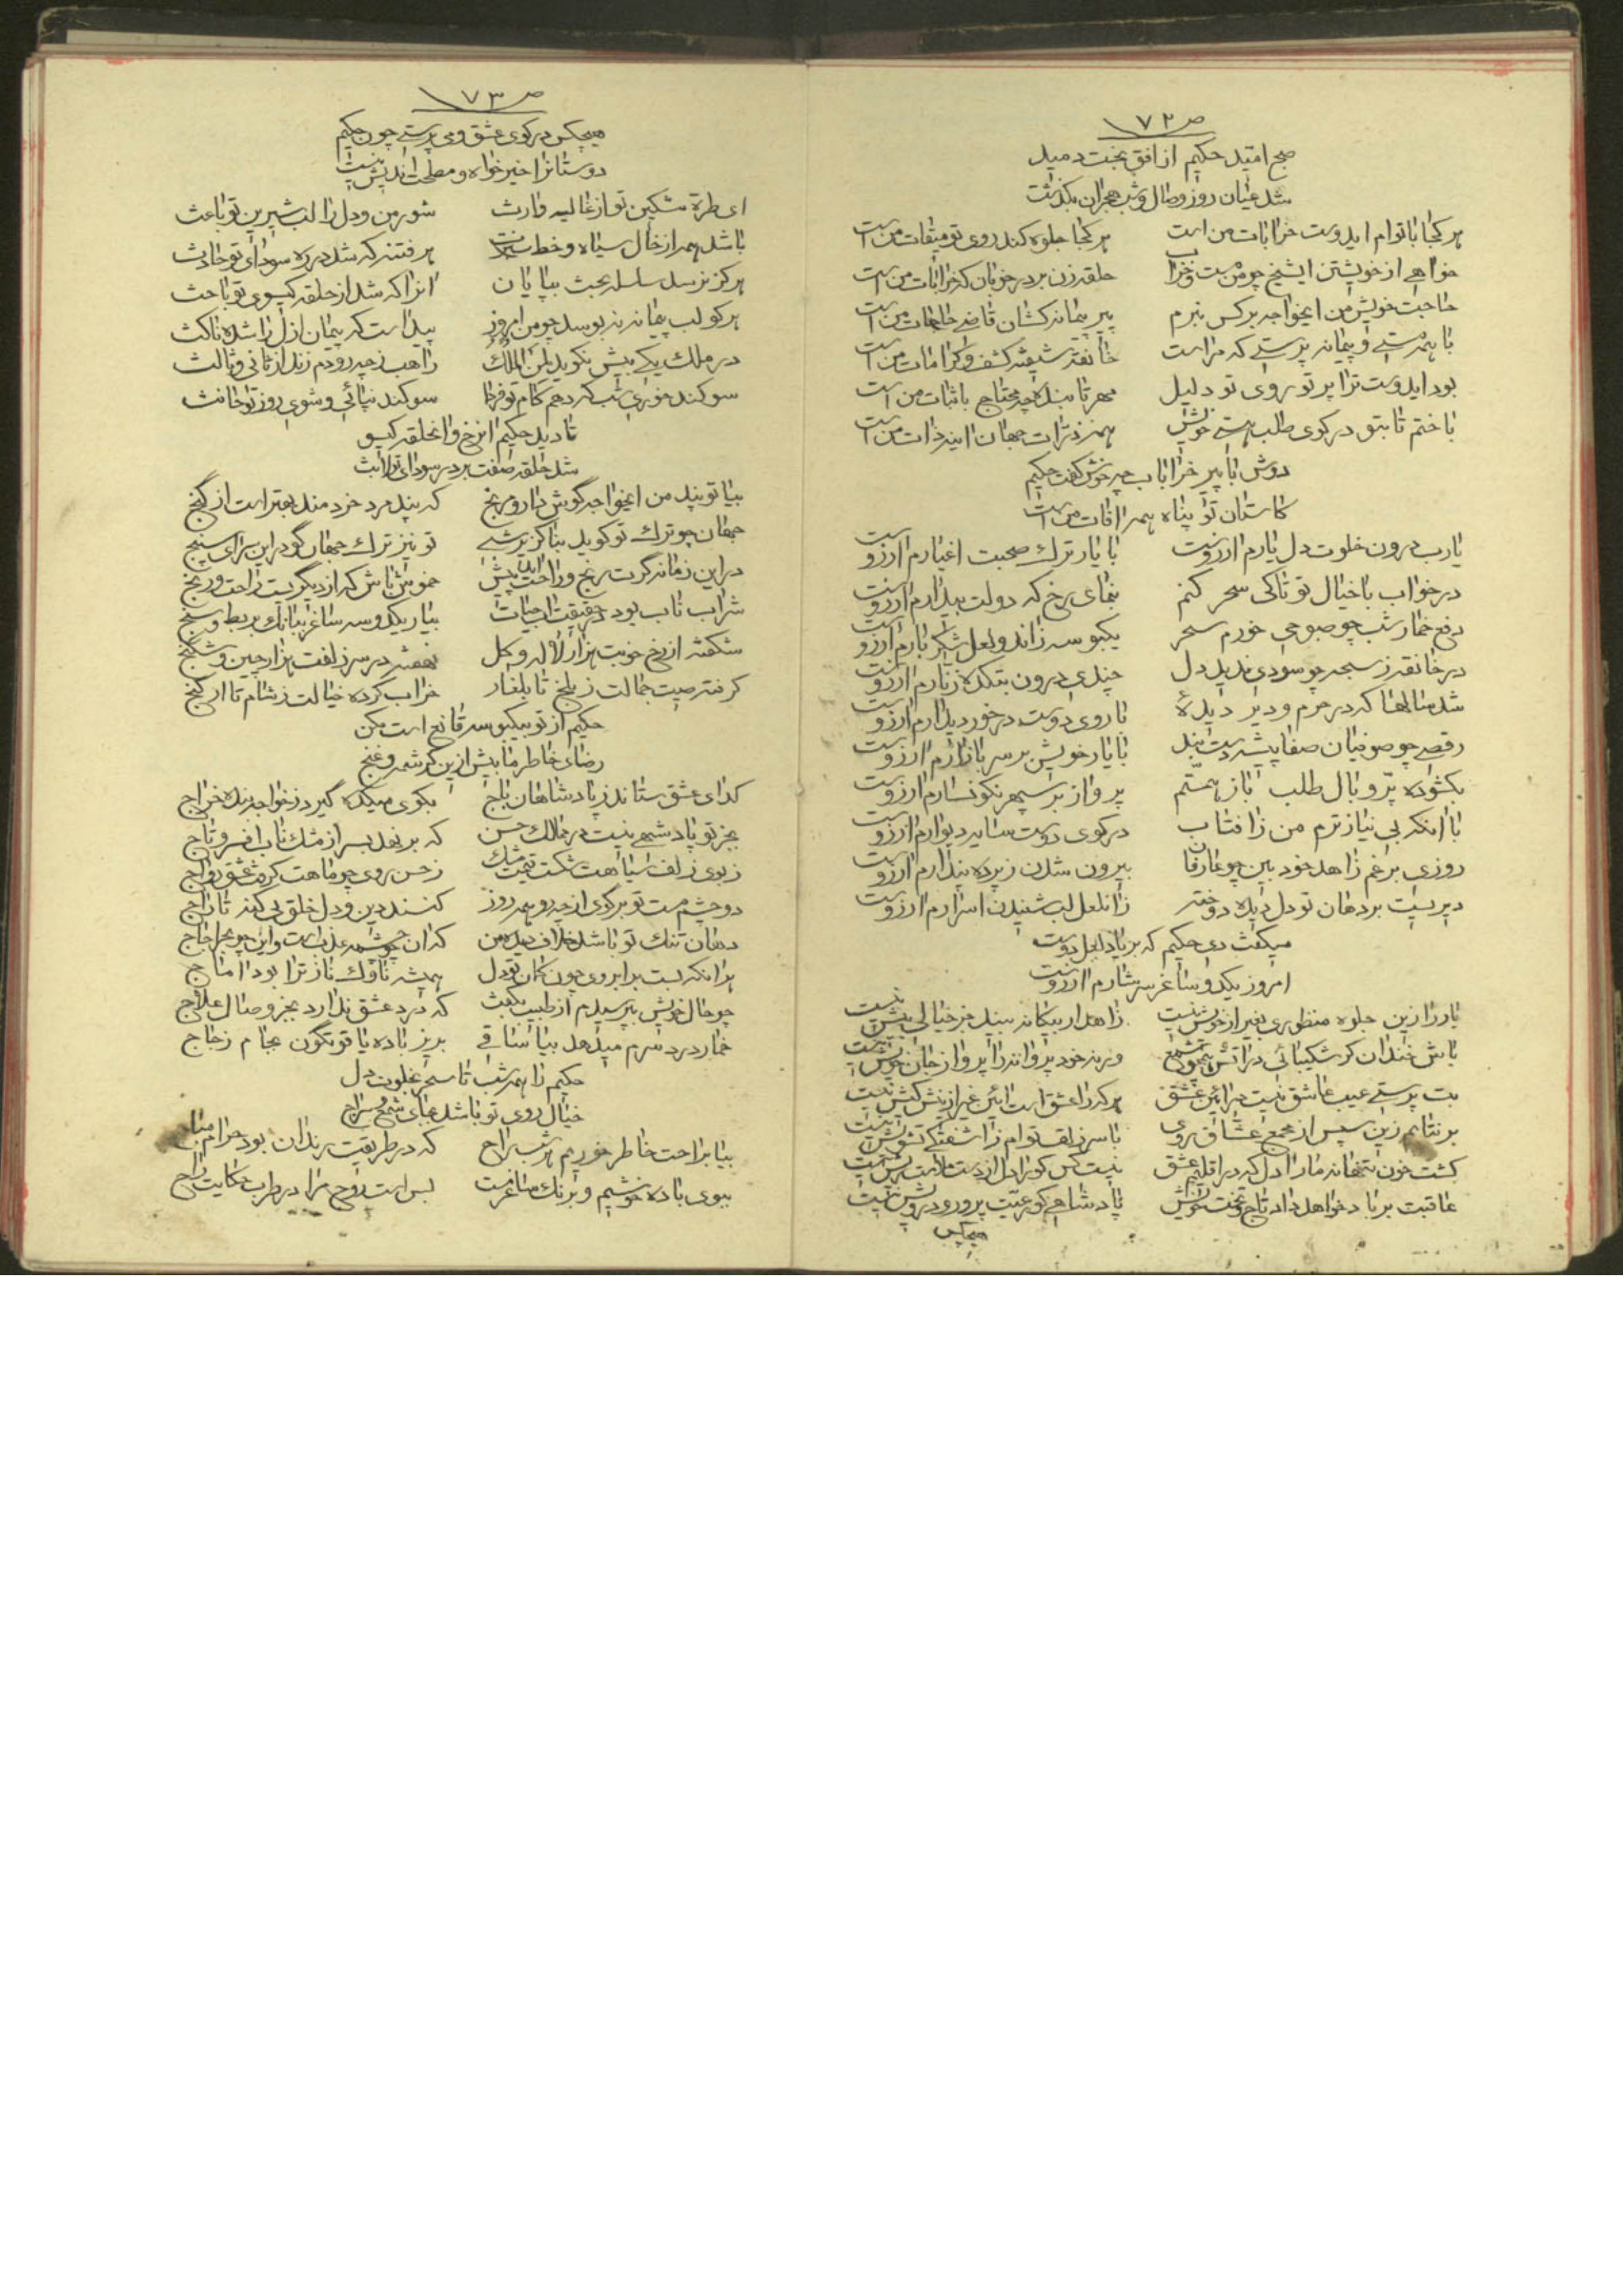 ص ۷۲
صبح امید حکیم از افق بخت دمید
شد عیان روز وصال و شب هجران بگذشت
هر کجا باتوام ایدوست خرابات من است هر کجا جلوه کند روی تو میقات من است
خواهی از خویشتن ایشیخ چو من مست و خراب حلقه زن بر در خوبان که خرابات من است
حاجت خویش من ایخواجه بر کس نبرم پیر پیمانه کشان قاضی حاجات من است
با همه مستی و پیمانه پرستی که مراست خانقه شیفته کشف و کرامات من است
بود ایدوست ترا پرتو روی تو دلیل مهر تابنده چه محتاج باثبات من است
باختم تا بتو در کوی طلب هستی خویش همه ذرات جهان اینه ذات من است
دوش با پیر خرابات چه خوش گفت حکیم
کاستان تو پناه همه افات من است
یارب درون خلوت دل یارم ارزوست با یار ترک صحبت اغیارم ارزوست
در خواب با خیال تو تا کی سحر کنم بنمای رخ که دولت بیدارم ارزوست
دفع خمار شب چو صبوحی خورم سحر یکبوسه زاندو لعل شکر بارم ارزوست
در خانقه ز سبحه چو سودی ندید دل چندی درون بتکده زنارم ارزوست
شد سالها که در حرم و دیر دیدهٔ تا روی دوست در خور دیدارم ارزوست
رقصی چو صوفیان صفا پیشه دست بند با یار خویش بر سر بازارم ارزوست
بگشوده پر و بال طلب باز همتم پرواز بر سپهر نگونسارم ارزوست
با انکه بی نیازترم من ز افتاب در کوی دوست سایه دیوارم ارزوست
روزی برغم زاهد خود بین چو عارفان بیرون شدن ز پرده پندارم ارزوست
دیریست بر دهان تو دل دیده دوخته زانلعل لب شنیدن اسرارم ارزوست
میگفت دی حکیم که بر یاد لعل دوست
امروز یکدو ساغر سرشارم ارزوست
یار را زین جلوه منظوری بغیر از خویش نیست زاهد ار بیگانه بیند جز خیالی بیش نیست
باش خندان گر شکیبائی در اتش همچو شمع ورنه خود پروانه را پروا ز جان خویش نیست
بت پرستی عیب عاشق نیست در ائین عشق هر که را عشق است ائین غیر ازینش کیش نیست
بر نتابم زین سپس از مجمع عشاق روی با سر زلف توام ز اشفتگی تشویش نیست
کشت خون تنها نه ما را دل که در اقلیم عشق نیست کس کورا دل از دست ملامت ریش نیست
عاقبت بر باد خواهد داد تاج و تخت خویش پادشاهی کو رعیت پرور و درویش نیست
هیچکس
ص ۷۳
هیچکس در کوی عشق و می پرستی چون حکیم
دوستانرا خیر خواه و مصلحت اندیش نیست
ای طره مشکین تو از غالیه وارث شور من و دل را لب شیرین تو باعث
باشد همه از خال سیاه و خط سبزت هر فتنه که شد در ره سودای تو حادث
هرگز نرسد سلسله بحث بپایان انرا که شد از حلقه گیسوی تو باحث
هر کو لب پیمانه نه بوسد چو من امروز پیداست که پیمان ازل را شده ناکث
در ملک یکی بیش نگوید لمن الملک راهب ز چه رو دم زند از ثانی و ثالث
سوگند خوری شب که دهم کام تو فردا سوگند نپائی و شوی روز تو حانث
تا دید حکیم انرخ و انحلقه گیسو
شد حلقه صفت بر در سودای تو لابث
بیا تو پند من ایخواجه گوش دار و مرنج که پند مرد خردمند بهتر است از گنج
جهان چو ترک تو گوید بناگزیر شبی تو نیز ترک جهان گو در این سرای سپنج
در این زمانه گرت رنج و راحت اید پیش خموش باش که از دیگریست راحت و رنج
شراب ناب بود در حقیقت اب حیات بیار یکدو سه ساغر ببانگ بربط و سنج
شکفته از رخ خوبت هزار لاله و گل نهفته در سر زلفت هزار چین و شکنج
گرفته صیت جمالت ز بلخ تا بلغار خراب کرده خیالت ز شام تا ارگنج
حکیم از تو بیکبوسه قانع است مکن
رضای خاطر ما بیش ازین کرشمه و غنج
گدای عشق ستاند ز پادشاهان باج بکوی میکده گیرد ز خواجه بنده خراج
بجز تو پادشهی نیست در ممالک حسن که بر نهد بسر از مشک ناب افسر و تاج
ز بوی زلف سیاهت شکست قیمت مشک ز حسن روی چو ماهت گرفت عشق رواج
دو چشم مست تو بر گوی از چه رو همه روز کنند دین و دل خلق بی گنه تاراج
دهان تنگ تو باشد خلاف دیده من که ان چو چشمه عذب است و این چو بحر اجاج
هر انکه بست بر ابروی چون کمان تو دل همیشه ناوک ناز ترا بود اماج
چو حال خویش بپرسیدم از طبیب بگفت که درد عشق ندارد بجز وصال علاج
خمار درد سرم میدهد بیا ساقی بریز باده یاقوتگون بجام زجاج
حکیم را همه شب تا سحر بخلوت دل
خیال روی تو باشد بجای شمع و سراج
بیا براحت خاطر خوریم هر شب راح که در طریقت رندان بود حرام مباح
ببوی باده خوشیم و برنگ ساغر مست بس است روح مرا در طرب حکایت راح